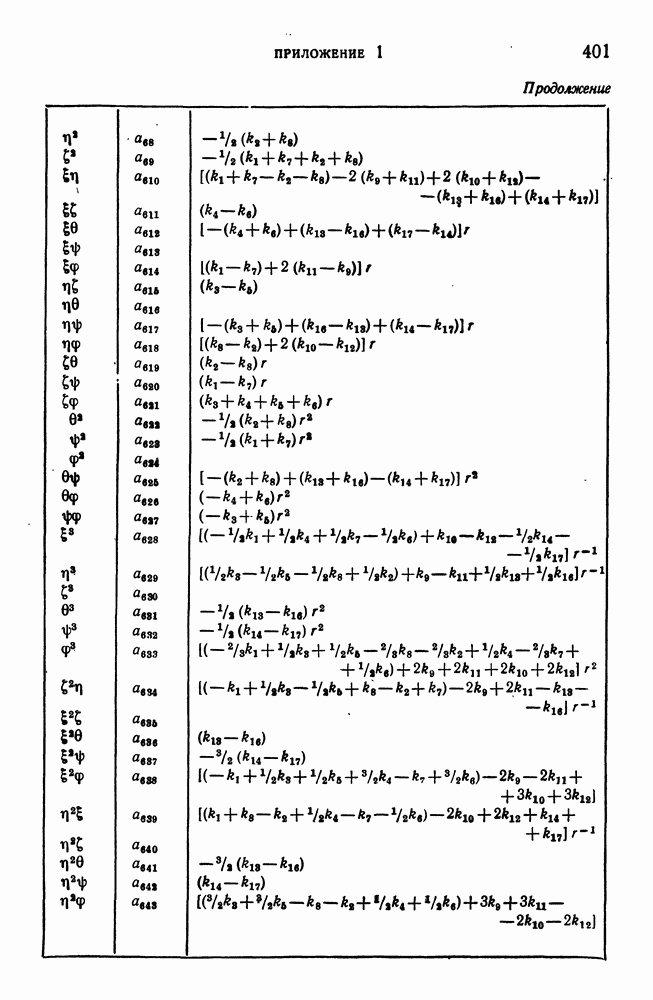 ПРИЛОЖЕНИЕ 1 401
Продолжение
η² a₆₈ —¹/₂ (k₂+k₈)
ζ² a₆₉ —¹/₂ (k₁+k₇+k₂+k₈)
ξη a₆₁₀ [(k₁+k₇—k₂—k₈)—2 (k₉+k₁₁)+2 (k₁₀+k₁₂)—
—(k₁₃+k₁₆)+(k₁₄+k₁₇)]
ξζ a₆₁₁ (k₄—k₆)
ξθ a₆₁₂ [—(k₄+k₆)+(k₁₃—k₁₆)+(k₁₇—k₁₄)]r
ξψ a₆₁₃
ξφ a₆₁₄ [(k₁—k₇)+2 (k₁₁—k₉)] r
ηζ a₆₁₅ (k₃—k₅)
ηθ a₆₁₆
ηψ a₆₁₇ [—(k₃+k₅)+(k₁₆—k₁₃)+(k₁₄—k₁₇)] r
ηφ a₆₁₈ [(k₈—k₂)+2 (k₁₀—k₁₂)] r
ζθ a₆₁₉ (k₂—k₈) r
ζψ a₆₂₀ (k₁—k₇) r
ζφ a₆₂₁ (k₃+k₄+k₅+k₆) r
θ² a₆₂₂ —¹/₂ (k₂+k₈) r²
ψ² a₆₂₃ —¹/₂ (k₁+k₇) r²
φ² a₆₂₄
θψ a₆₂₅ [—(k₂+k₈)+(k₁₃+k₁₆)—(k₁₄+k₁₇)] r²
θφ a₆₂₆ (—k₄+k₆)r²
ψφ a₆₂₇ (—k₃+k₅)r²
ξ³ a₆₂₈ [(—¹/₂k₁+¹/₂k₄+¹/₂k₇—¹/₂k₆)+k₁₀—k₁₂—¹/₂k₁₄—
—¹/₂k₁₇] r⁻¹
η³ a₆₂₉ [(¹/₂k₃—¹/₂k₅—¹/₂k₈+¹/₂k₂)+k₉—k₁₁+¹/₂k₁₃+¹/₂k₁₆] r⁻¹
ζ³ a₆₃₀
θ³ a₆₃₁ —¹/₂ (k₁₃—k₁₆) r²
ψ³ a₆₃₂ —¹/₂ (k₁₄—k₁₇) r²
φ³ a₆₃₃ [(—²/₃k₁+¹/₂k₃+¹/₂k₅—²/₃k₈—²/₃k₂+¹/₂k₄—²/₃k₇+
+¹/₂k₆)+2k₉+2k₁₁+2k₁₀+2k₁₂] r²
ζ²η a₆₃₄ [(—k₁+¹/₂k₃—¹/₂k₅+k₈—k₂+k₇)—2k₉+2k₁₁—k₁₃—
—k₁₆] r⁻¹
ξ²ζ a₆₃₅
ξ²θ a₆₃₆ (k₁₃—k₁₆)
ξ²ψ a₆₃₇ —³/₂ (k₁₄—k₁₇)
ξ²φ a₆₃₈ [(—k₁+¹/₂k₃+¹/₂k₅+³/₂k₄—k₇+³/₂k₆)—2k₉—2k₁₁+
+3k₁₀+3k₁₂]
η²ξ a₆₃₉ [(k₁+k₈—k₂+¹/₂k₄—k₇—¹/₂k₆)—2k₁₀+2k₁₂+k₁₄+
+k₁₇] r⁻¹
η²ζ a₆₄₀
η²θ a₆₄₁ —³/₂ (k₁₃—k₁₆)
η²ψ a₆₄₂ (k₁₄—k₁₇)
η²φ a₆₄₃ [(³/₂k₃+³/₂k₅—k₈—k₂+¹/₂k₄+¹/₂k₆)+3k₉+3k₁₁—
—2k₁₀—2k₁₂]